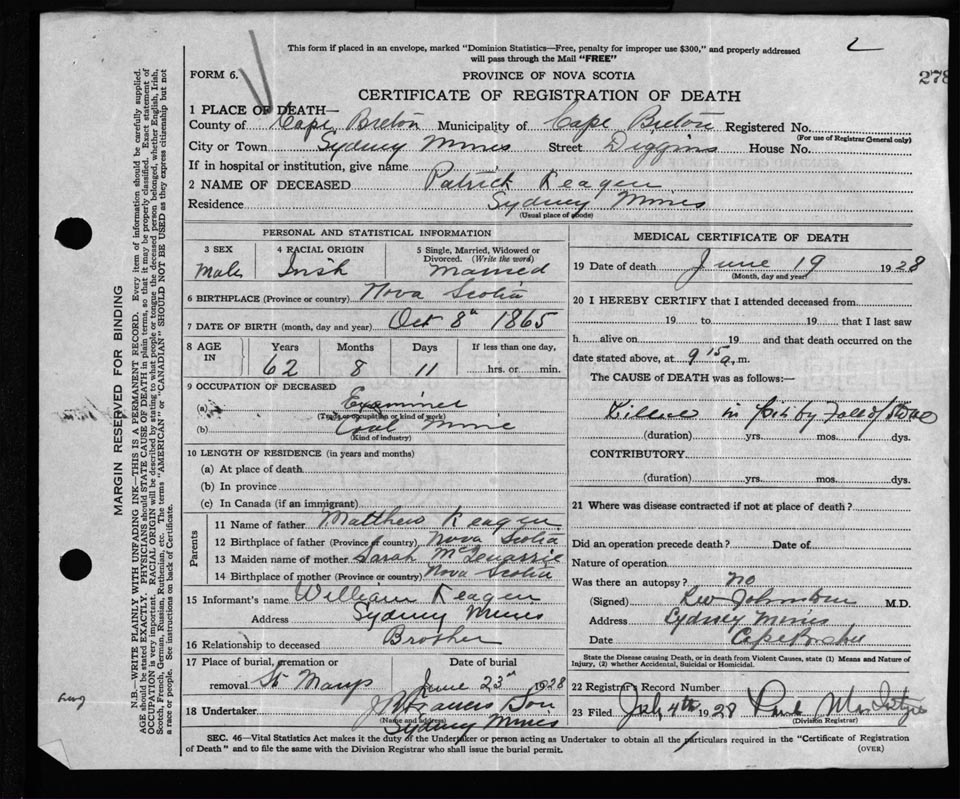 This form if placed in an envelope, marked "Dominion Statistics—Free, penalty for improper use $300," and properly addressed
will pass through the Mail "FREE"
278
FORM 6.
PROVINCE OF NOVA SCOTIA
CERTIFICATE OF REGISTRATION OF DEATH
1 PLACE OF DEATH—
County of Cape Breton Municipality of Cape Breton Registered No.
(For use of Registrar General only)
City or Town Sydney Mines Street Diggins House No.
If in hospital or institution, give name
2 NAME OF DECEASED Patrick Keagen
Residence Sydney Mines
(Usual place of abode)
PERSONAL AND STATISTICAL INFORMATION
3 SEX
Male
4 RACIAL ORIGIN
Irish
5 Single, Married, Widowed or
Divorced. (Write the word)
Married
6 BIRTHPLACE (Province or country) Nova Scotia
7 DATE OF BIRTH (month, day and year) Oct 8th 1865
8 AGE
IN
Years Months Days If less than one day,
62 8 11 hrs. or min.
9 OCCUPATION OF DECEASED
(a) Examiner
(Trade or occupation or kind of work)
(b) Coal Mine
(Kind of industry)
10 LENGTH OF RESIDENCE (in years and months)
(a) At place of death
(b) In province
(c) In Canada (if an immigrant)
Parents
11 Name of father Matthew Keagen
12 Birthplace of father (Province or country) Nova Scotia
13 Maiden name of mother Sarah
14 Birthplace of mother (Province or country) Nova Scotia
15 Informant's name William Keagen
Address Sydney Mines
16 Relationship to deceased Brother
17 Place of burial, cremation or
removal St Marys
Date of burial
June 23rd 1928
18 Undertaker Son
(Name and address)
Sydney Mines
MEDICAL CERTIFICATE OF DEATH
19 Date of death June 19 1928
(Month, day and year)
20 I HEREBY CERTIFY that I attended deceased from
19 to 19 that I last saw
h alive on 19 and that death occurred on the
date stated above, at 9 15 a. m.
The CAUSE of DEATH was as follows:—
Killed in pit by Fall of Stone
(duration) yrs. mos. dys.
CONTRIBUTORY
(duration) yrs. mos. dys.
21 Where was disease contracted if not at place of death?
Did an operation precede death? Date of
Nature of operation
Was there an autopsy? no
(Signed) Johnstone M.D.
Address Sydney Mines
Date Cape Breton
State the Disease causing Death, or in death from Violent Causes, state (1) Means and Nature of
Injury, (2) whether Accidental, Suicidal or Homicidal.
22 Registrar's Record Number
23 Filed July 4th 1928
(Division Registrar)
SEC. 46—Vital Statistics Act makes it the duty of the Undertaker or person acting as Undertaker to obtain all the particulars required in the "Certificate of Registration
of Death" and to file the same with the Division Registrar who shall issue the burial permit.
(OVER)
MARGIN RESERVED FOR BINDING
N.B.—WRITE PLAINLY WITH UNFADING INK—THIS IS A PERMANENT RECORD. Every item of information should be carefully supplied.
AGE should be stated EXACTLY. PHYSICIANS should STATE CAUSE OF DEATH in plain terms, so that it may be properly classified. Exact statement of
OCCUPATION is very important. RACIAL ORIGIN will be described by stating to what people or tongue the deceased person belonged, whether English, Irish,
Scotch, French, German, Russian, Ruthenian, etc. The terms "AMERICAN" or "CANADIAN" SHOULD NOT BE USED as they express citizenship but not
a race or people. See instructions on back of Certificate.